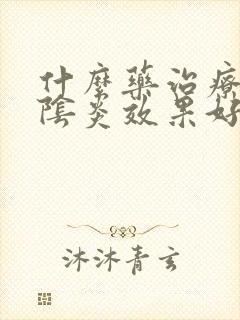 什麼藥治療
陰炎效果好
沐沐青玄